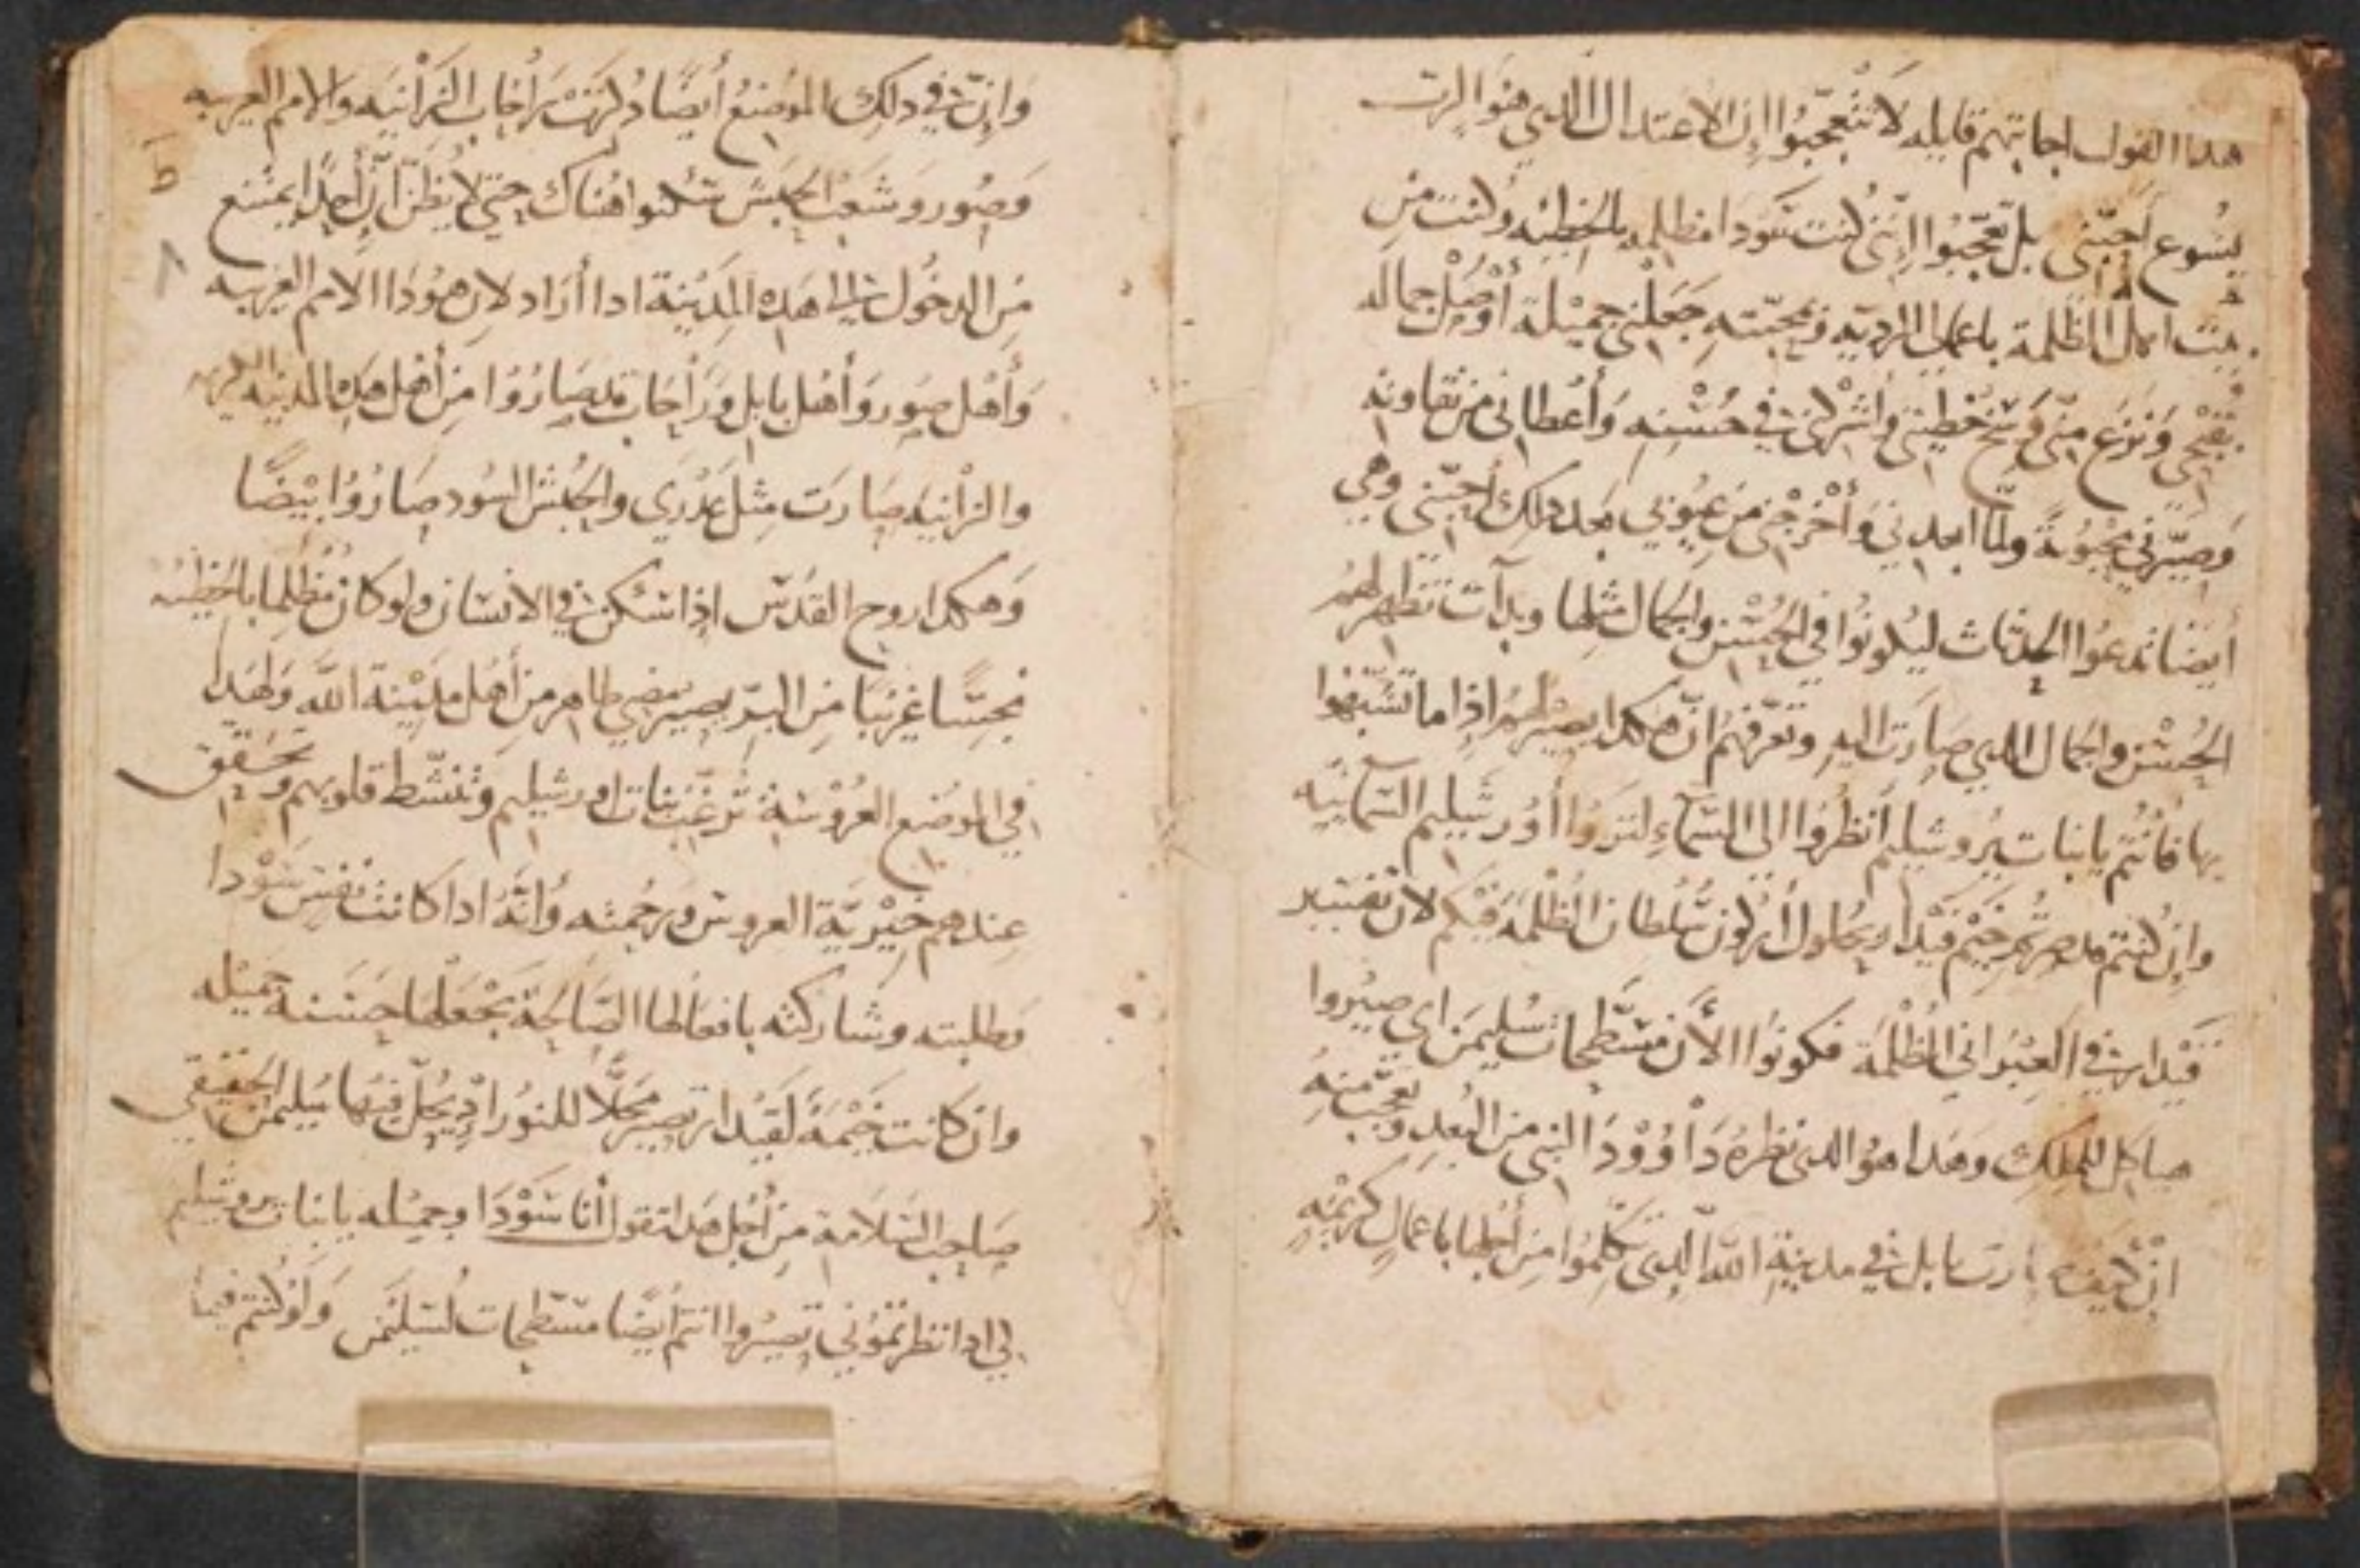 هدا القول اجابتهم قايله لا تتعجبوا ان الاعتدال الدي هو الرب
يسوع احبني بل تعجبوا انني كنت سودا مظلمه بالخطيه وكنت من
اهل الظلمة باعمالي الرديه ومحبته جعلني جميلة جماله
بقبحي ونزع مني وسخ خطيتي واشركني في حسنه وأعطاني من نقاوته
وصيرني محبوبة ولما ابعدني وأخرجني من عيوبي بعد دلك أحبني وهي
أيضا تدعوا الحدثات ليكونوا في الحسن والجمال مثلها وبدأت تظهر لهم
الحسن والجمال الدي صارت اليه وتعرفهم ان هكدا يصير لهم اذا ما تشبهوا
بها فانتم يا بنات يروشليم انظروا الي السماء لتروا أورشليم السمايية
وان كنتم قد صرتم خيم قيدار بحلول أركون سلطان الظلمة فيكم لان تفسير
قيدار في العبراني الظلمة فكونوا الأن مسطحات سليمن اي صيروا
هياكل للملك وهدا هو الدي نظره داوود النبي من البعد وتعجب منه
ان كيف صارت بابل في مدينة الله الدي تكلموا من أجلها باعمال كريمه
وان في دلك الموضع أيضا دكرت راحاب الزانيه والامم الغريبه
وصور وشعب الحبش سكنوا هناك حتي لا يظن أن أحدا يمتنع
من الدخول الي هده المدينة ادا أراد لان هودا الامم الغريبه
وأهل صور وأهل بابل وراحاب قد صاروا من أهل هده المدينه
والزانيه صارت مثل عدري والحبش السود صاروا ابيضا
وهكدا روح القدس اذا سكن في الانسان ولو كان مظلما بالخطيه
نجسا غريبا من البر يصير مضي طاهر من أهل مدينة الله ولهدا
في الموضع العروسة ترغب بنات اورشليم وتنشط قلوبهم وتحقق
عندهم خيرية العروس ورحمته وأنه ادا كانت نفس سودا
وطلبته وشاركته بافعالها الصالحة يجعلها حسنة جميله
وان كانت خيمة لقيدار تصير محلا للنور اد يحل فيها سليمن الحقيقي
صاحب السلامة من أجل هدا تقول أنا سودا وجميله يا بنات يروشليم
لي ادا نظرتموني تصيروا انتم أيضا مسطحات لسليمن ولو كنتم فيما